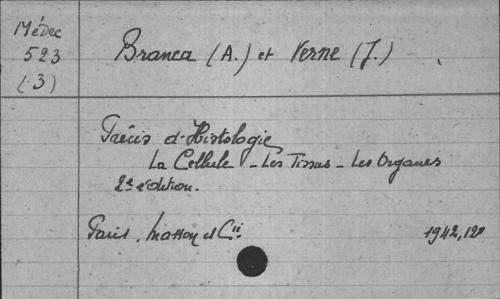 Médec
523
(3)
Branca (A.) et Verne (J.)
Précis d'Histologie
La Cellule - Les Tissus - Les Organes
2e édition.
Paris, Masson et Cie
1942, 12°